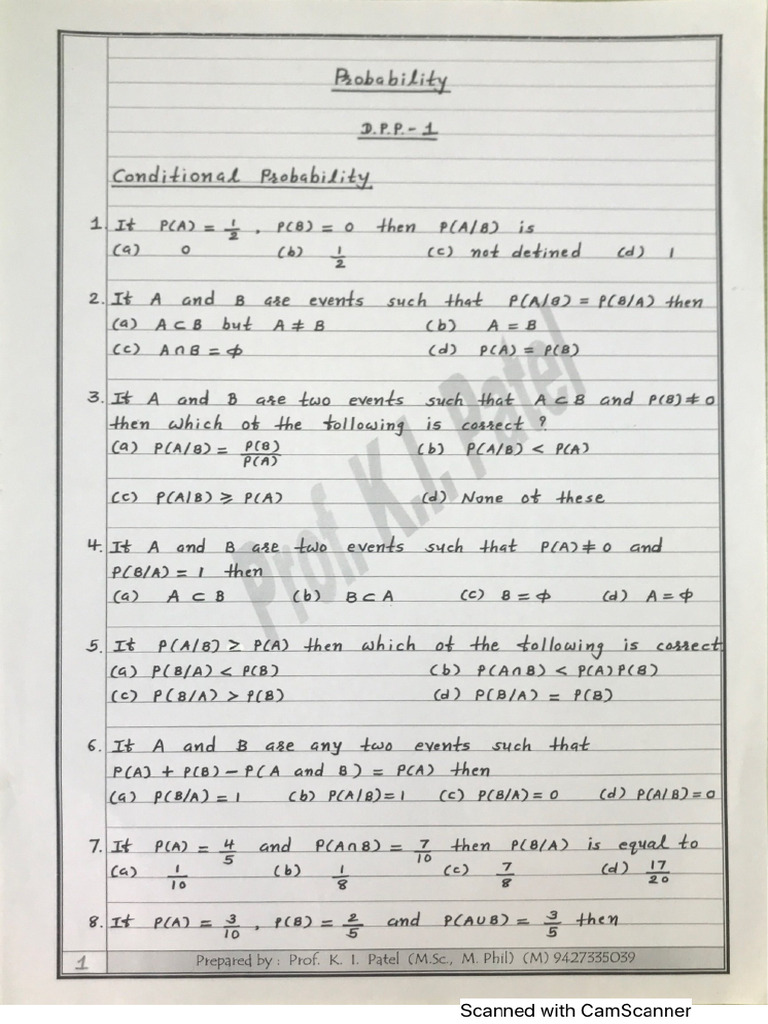 Probability
D.P.P.-1
Conditional Probability
1. If P(A) = 1/2 , P(B) = 0 then P(A/B) is
(a) 0 (b) 1/2 (c) not defined (d) 1
2. If A and B are events such that P(A/B) = P(B/A) then
(a) A⊂B but A≠B (b) A = B
(c) A∩B = ϕ (d) P(A) = P(B)
3. If A and B are two events such that A⊂B and P(B)≠0
then which of the following is correct ?
(a) P(A/B) = P(B)/P(A) (b) P(A/B) < P(A)
(c) P(A/B) ≥ P(A) (d) None of these
4. If A and B are two events such that P(A)≠0 and
P(B/A) = 1 then
(a) A⊂B (b) B⊂A (c) B = ϕ (d) A = ϕ
5. If P(A/B) > P(A) then which of the following is correct
(a) P(B/A) < P(B) (b) P(A∩B) < P(A)P(B)
(c) P(B/A) > P(B) (d) P(B/A) = P(B)
6. If A and B are any two events such that
P(A) + P(B) – P(A and B) = P(A) then
(a) P(B/A) = 1 (b) P(A/B) = 1 (c) P(B/A) = 0 (d) P(A/B) = 0
7. If P(A) = 4/5 and P(A∩B) = 7/10 then P(B/A) is equal to
(a) 1/10 (b) 1/8 (c) 7/8 (d) 17/20
8. If P(A) = 3/10 , P(B) = 2/5 and P(A∪B) = 3/5 then
Prof. K.I. Patel
1 Prepared by : Prof. K. I. Patel (M.Sc., M. Phil) (M) 9427335039
Scanned with CamScanner